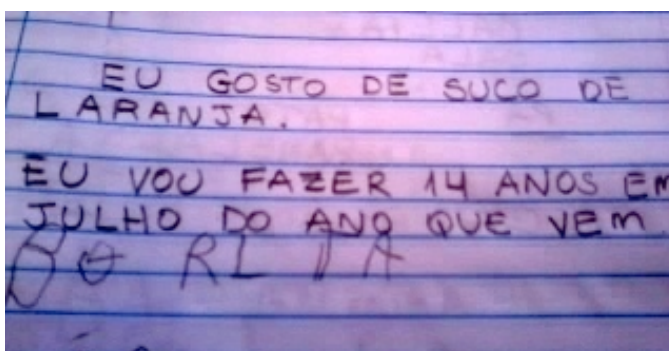 EU GOSTO DE SUCO DE
LARANJA.
EU VOU FAZER 14 ANOS EM
JULHO DO ANO QUE VEM.
RL